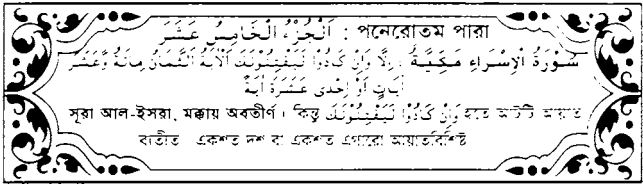 اَلْجُزْءُ الْخَامِسُ عَشَرَ : পনেরোতম পারা
سُوْرَةُ الْإِسْرَاءِ مَكِّيَّةٌ : إِلَّا وَإِنْ كَادُوْا لَيَفْتِنُوْنَكَ اَلْآيَةُ الثَّمَانِ مِائَةٌ وَّعَشْرُ
آيَاتٍ أَوْ إِحْدٰى عَشَرَةَ آيَةً
সূরা আল-ইসরা, মক্কায় অবতীর্ণ। কিন্তু وَإِنْ كَادُوْا لَيَفْتِنُوْنَكَ হতে আটটি আয়াত
ব্যতীত একশত দশ বা একশত এগারো আয়াতবিশিষ্ট